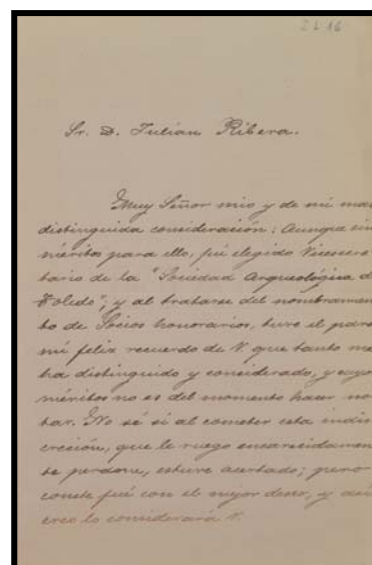 Z L 16
Sr. D. Julian Ribera.
Muy Señor mio y de mi mas
distinguida consideración: Aunque sin
méritos para ello, fuí elegido Vicesecre
tario de la "Sociedad Arqueológica de
Toledo"; y al tratarse del nombramien
to de Socios honorarios, tuve el para
mi feliz recuerdo de V. que tanto me
ha distinguido y considerado, y cuyos
méritos no es del momento hacer no
tar. No sé si al cometer esta indis
creción, que le ruego encarecidamen
te perdone, estuve acertado; pero
conste fué con el mejor deseo, y así
creo lo considerará V.